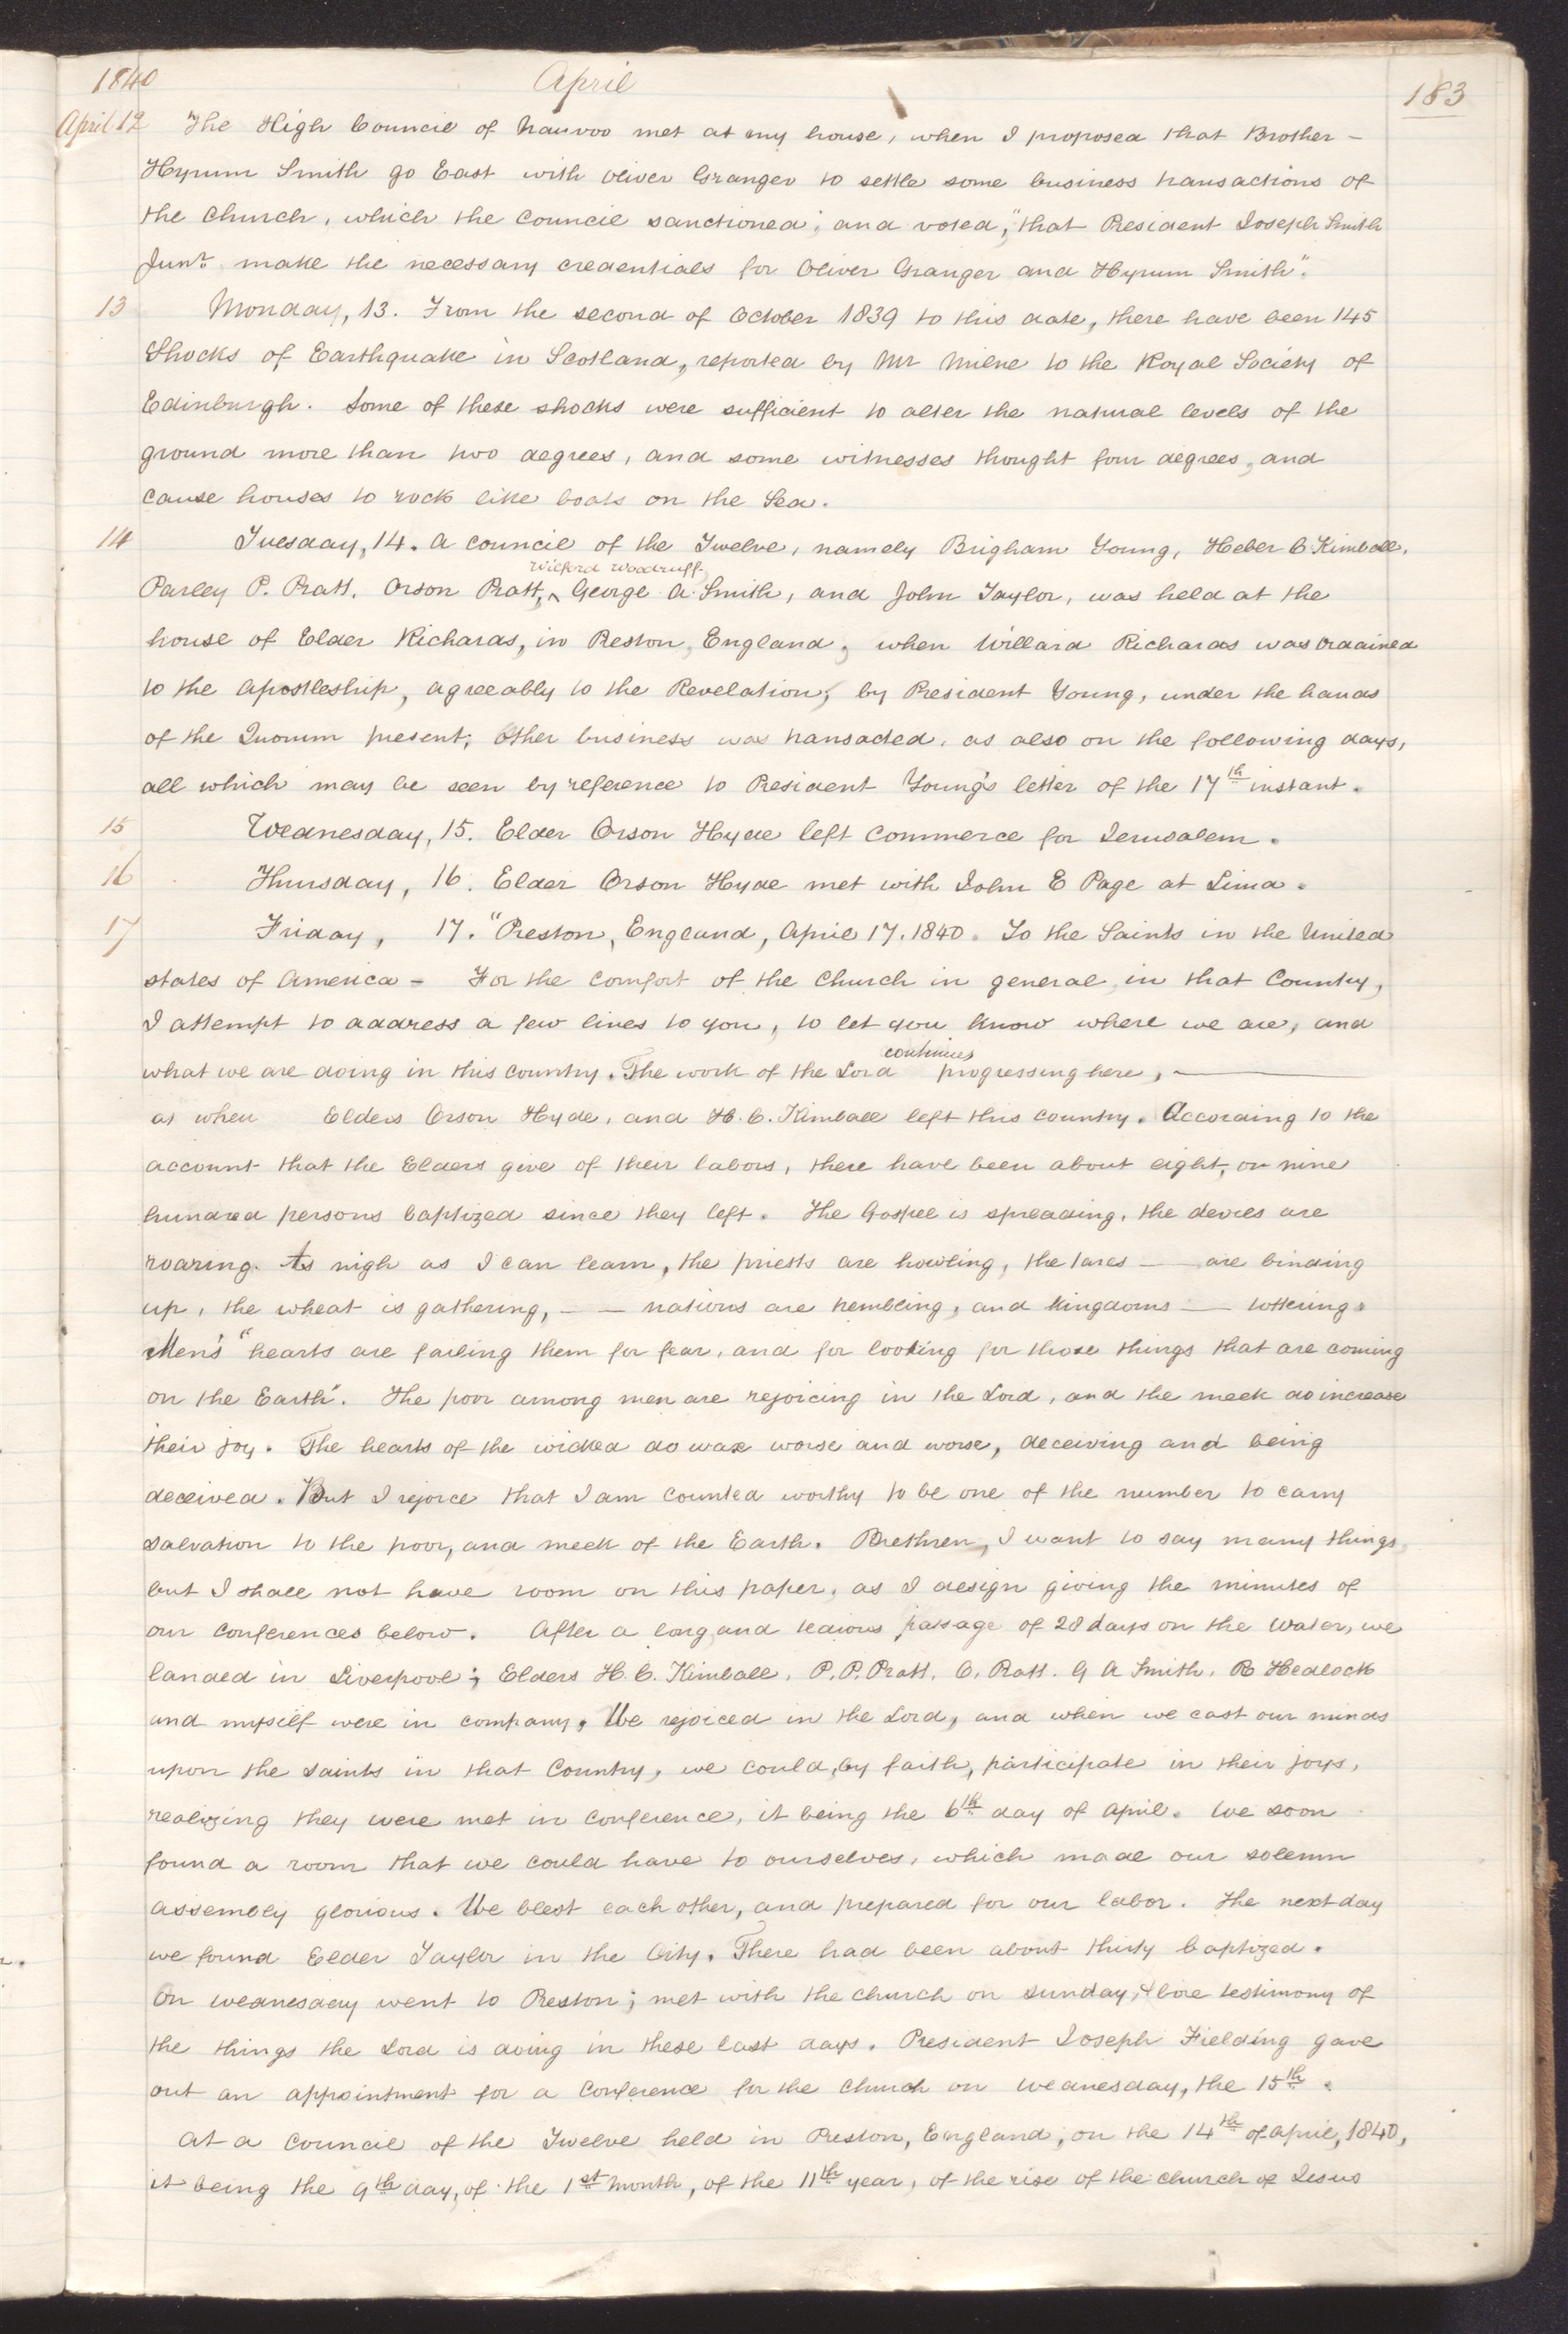 1840 April 183
April 12 The High Council of Nauvoo met at my house, when I proposed that Brother –
Hyrum Smith go East with Oliver Granger to settle some business transactions of
the Church, which the Council sanctioned; and voted, "that President Joseph Smith
Junr. make the necessary credentials for Oliver Granger and Hyrum Smith".
13 Monday, 13. From the second of October 1839 to this date, there have been 145
Shocks of Earthquake in Scotland, reported by Mr Milne to the Royal Society of
Edinburgh. Some of these shocks were sufficient to alter the natural levels of the
ground more than two degrees, and some witnesses thought four degrees, and
cause houses to rock like boats on the Sea.
14 Tuesday, 14. A council of the Twelve, namely Brigham Young, Heber C. Kimball,
Wilford Woodruff,
Parley P. Pratt, Orson Pratt, ^ George A. Smith, and John Taylor, was held at the
house of Elder Richards, in Preston, England; when Willard Richards was ordained
to the apostleship, agreeably to the Revelation, by President Young, under the hands
of the Quorum present; Other business was transacted, as also on the following days,
all which may be seen by reference to President Young's letter of the 17th instant.
15 Wednesday, 15. Elder Orson Hyde left Commerce for Jerusalem.
16 Thursday, 16. Elder Orson Hyde met with John E Page at Lima.
17 Friday, 17. "Preston, England, April 17. 1840. To the Saints in the United
states of America – For the comfort of the Church in general, in that Country,
I attempt to address a few lines to you, to let you know where we are, and
continues
what we are doing in this country. The work of the Lord progressing here, —
as when Elders Orson Hyde, and H. C. Kimball left this country. According to the
account that the Elders give of their labors, there have been about eight, or nine
hundred persons baptized since they left. The Gospel is spreading, the devils are
roaring. As nigh as I can learn, the priests are howling, the tares — are binding
up, the wheat is gathering, – – nations are trembling, and kingdoms — tottering.
Men's "hearts are failing them for fear, and for looking for those things that are coming
on the Earth". The poor among men are rejoicing in the Lord, and the meek do increase
their joy. The hearts of the wicked do wax worse and worse, deceiving and being
deceived. But I rejoice that I am counted worthy to be one of the number to carry
salvation to the poor, and meek of the Earth. Brethren, I want to say many things,
but I shall not have room on this paper, as I design giving the minutes of
our conferences below. After a long and tedious passage of 28 days on the water, we
landed in Liverpool; Elders H. C. Kimball, P. P. Pratt, O. Pratt. G A Smith, R Hedlock
and myself were in company. We rejoiced in the Lord, and when we cast our minds
upon the saints in that Country, we could, by faith, participate in their joys,
realizing they were met in conference, it being the 6th day of April. We soon
found a room that we could have to ourselves, which made our solemn
assembly glorious. We blest each other, and prepared for our labor. The next day
we found Elder Taylor in the City. There had been about thirty baptized.
On wednesday went to Preston; met with the church on sunday, & bore testimony of
the things the Lord is doing in these last days. President Joseph Fielding gave
out an appointment for a Conference for the Church on Wednesday, the 15th.
At a council of the Twelve held in Preston, England, on the 14th of April, 1840,
it being the 9th day, of the 1st month, of the 11th year, of the rise of the church of Jesus